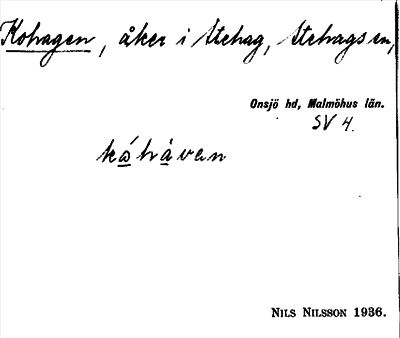 Kohagen, åker i Stehag, Stehags sn,
Onsjö hd, Malmöhus län.
SV 4.
kåhåven
NILS NILSSON 1936.